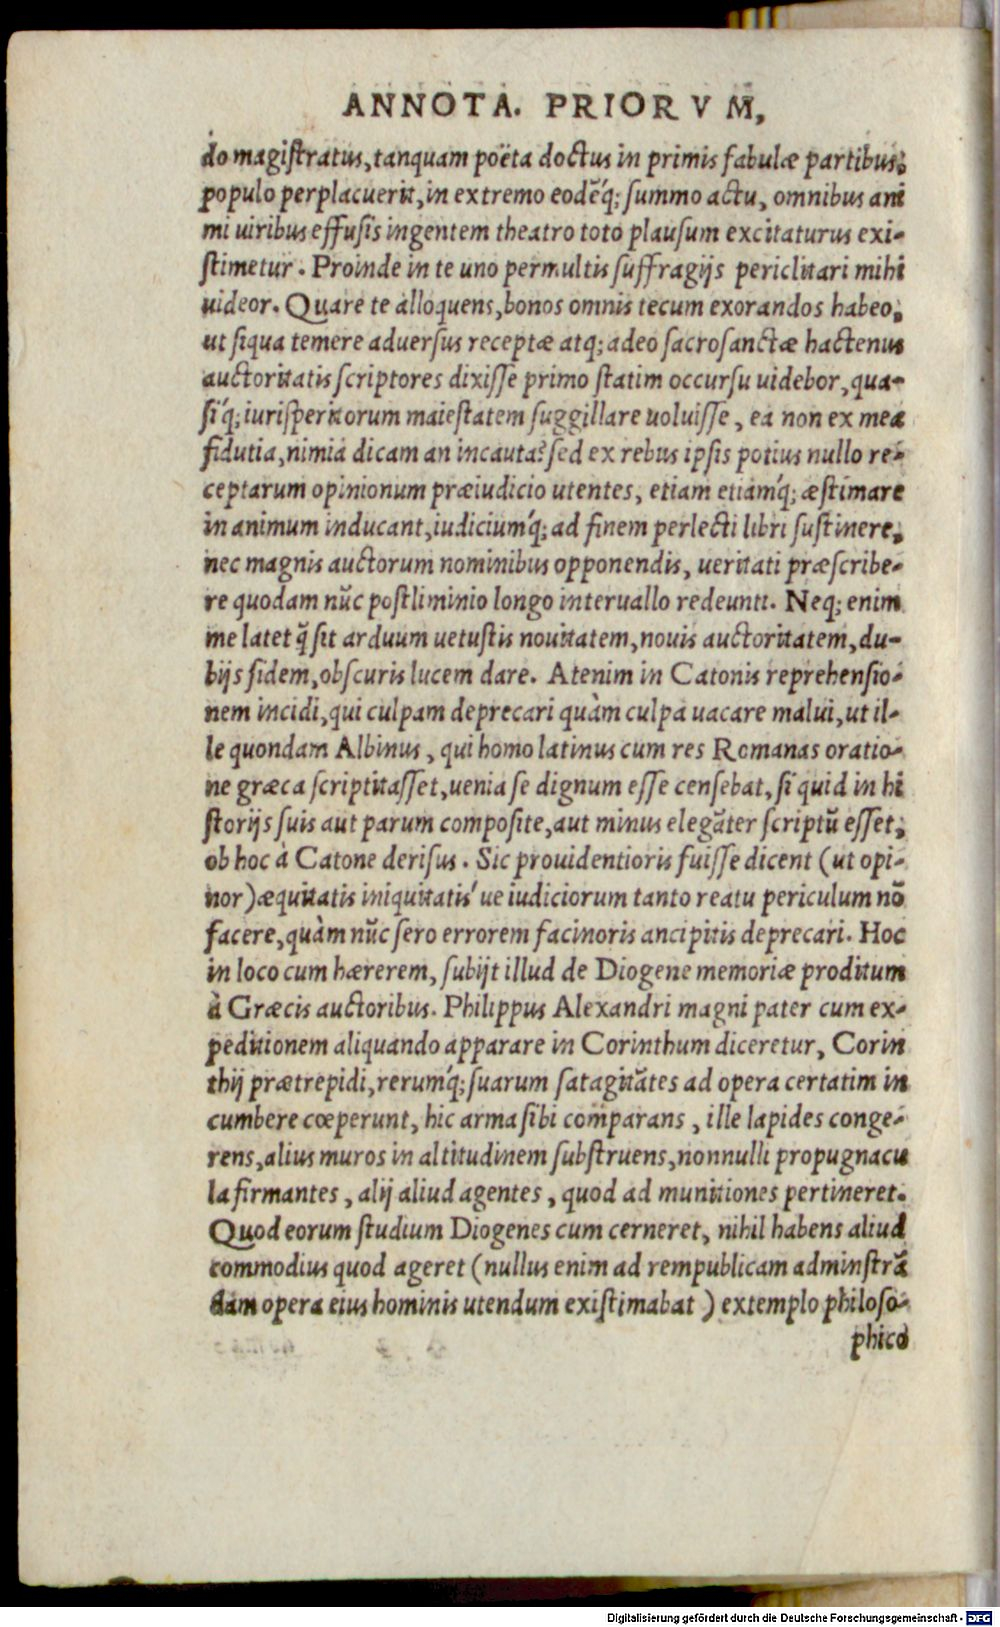 ANNOTA. PRIORVM,
do magiſtratus, tanquam poëta doctus in primis fabulæ partibus,
populo perplacuerit, in extremo eodẽq́; ſummo actu, omnibus ani
mi uiribus effuſis ingentem theatro toto plauſum excitaturus exi-
ſtimetur. Proinde in te uno permultis ſuffragijs periclitari mihi
uideor. Quare te alloquens, bonos omnis tecum exorandos habeo,
ut ſiqua temere aduerſus receptæ atq; adeo ſacroſanctæ hactenus
auctoritatis ſcriptores dixiſſe primo ſtatim occurſu uidebor, qua-
ſiq́; iuriſperitorum maieſtatem ſuggillare uoluiſſe, ea non ex mea
fidutia, nimia dicam an incauta? ſed ex rebus ipſis potius nullo re-
ceptarum opinionum præiudicio utentes, etiam etiamq́; æſtimare
in animum inducant, iudiciumq́; ad finem perlecti libri ſuſtinere,
nec magnis auctorum nominibus opponendis, ueritati præſcribe-
re quodam nũc poſtliminio longo interuallo redeunti. Neq; enim
me latet q̃ ſit arduum uetuſtis nouitatem, nouis auctoritatem, du-
bijs fidem, obſcuris lucem dare. Atenim in Catonis reprehenſio-
nem incidi, qui culpam deprecari quàm culpa uacare malui, ut il-
le quondam Albinus, qui homo latinus cum res Romanas oratio-
ne græca ſcriptitaſſet, uenia ſe dignum eſſe cenſebat, ſi quid in hi
ſtorijs ſuis aut parum compoſite, aut minus elegãter ſcriptũ eſſet,
ob hoc à Catone deriſus. Sic prouidentioris fuiſſe dicent (ut opi-
nor) æquitatis iniquitatis´ue iudiciorum tanto reatu periculum nõ
facere, quàm nũc ſero errorem facinoris ancipitis deprecari. Hoc
in loco cum hærerem, ſubijt illud de Diogene memoriæ proditum
à Græcis auctoribus. Philippus Alexandri magni pater cum ex-
peditionem aliquando apparare in Corinthum diceretur, Corin
thij prætrepidi, rerumq́; ſuarum ſatagitãtes ad opera certatim in
cumbere cœperunt, hic arma ſibi comparans, ille lapides conge-
rens, alius muros in altitudinem ſubſtruens, nonnulli propugnacu
la firmantes, alij aliud agentes, quod ad munitiones pertineret.
Quod eorum ſtudium Diogenes cum cerneret, nihil habens aliud
commodius quod ageret (nullus enim ad rempublicam adminſtrã
dam opera eius hominis utendum exiſtimabat) extemplo philoſo-
phico
Digitalisierung gefördert durch die Deutsche Forschungsgemeinschaft - DFG